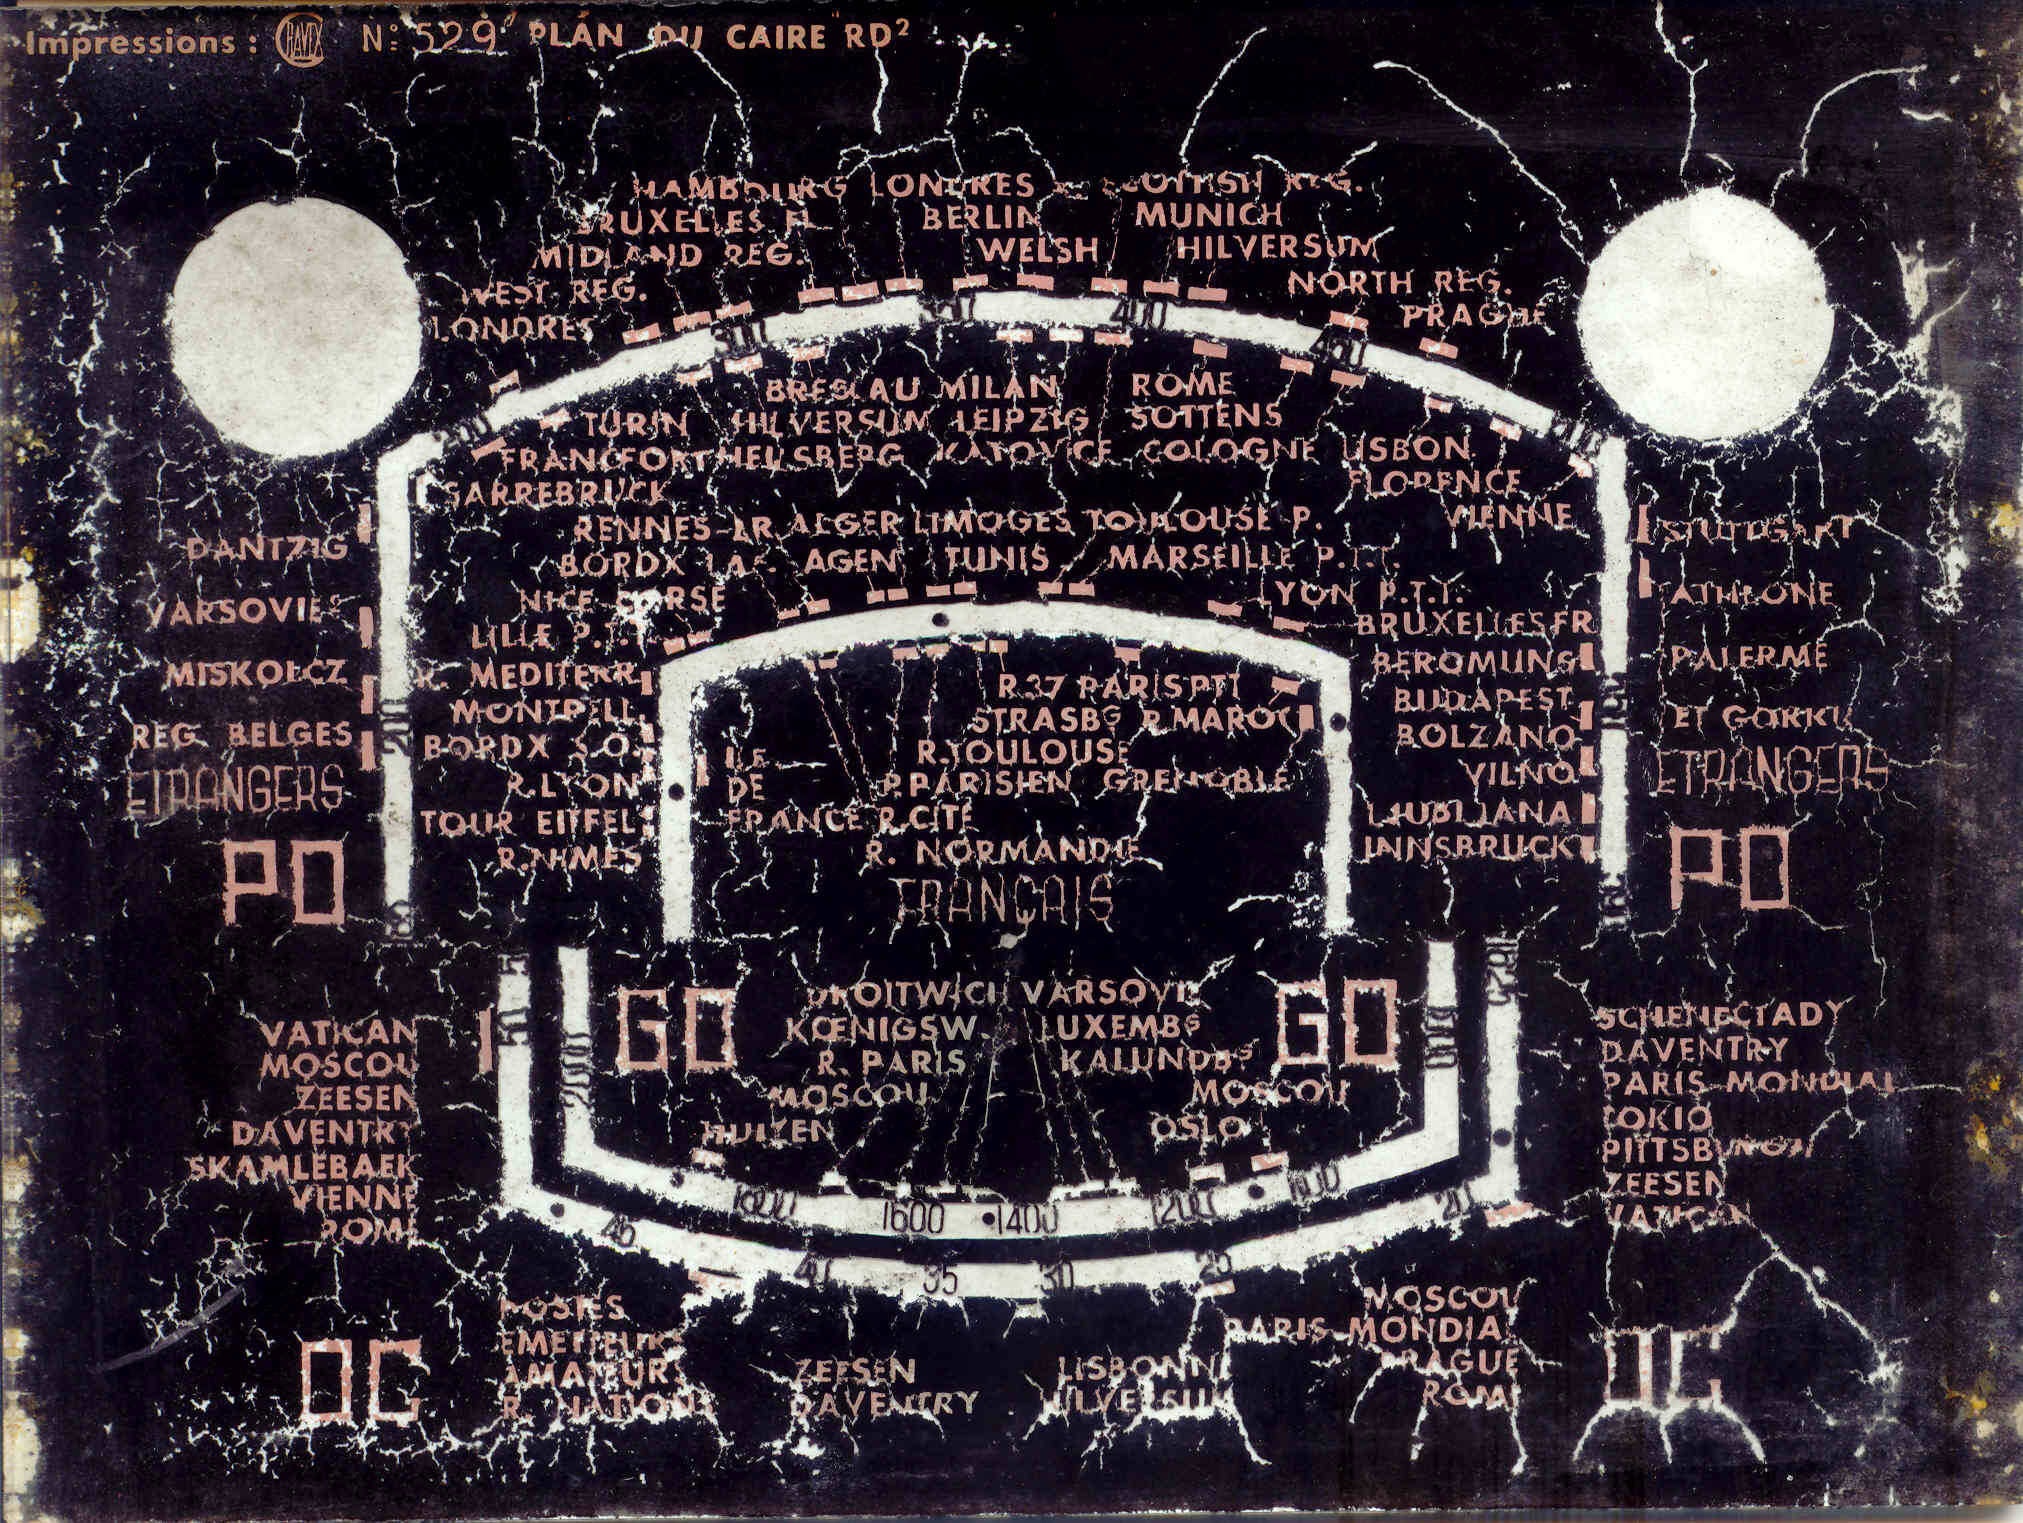 Impressions : GRAVEX N° 529 PLAN DU CAIRE RD²
HAMBOURG LONDRES SCOTTISH REG.
BRUXELLES FL BERLIN MUNICH
MIDLAND REG. WELSH HILVERSUM
WEST REG. NORTH REG.
LONDRES PRAGUE
300 350 400 450
BRESLAU MILAN ROME
TURIN HILVERSUM LEIPZIG SOTTENS
FRANCFORT HEILSBERG KATOVICE COLOGNE LISBON
SARREBRUCK FLORENCE
VIENNE
RENNES-BR ALGER LIMOGES TOULOUSE P.
BORDX LAF. AGEN TUNIS MARSEILLE P.T.T.
NICE CORSE LYON P.T.T.
LILLE P.T.T. BRUXELLES FR
R. MEDITERR. BEROMUNS
MONTPELL. BUDAPEST
BORDX S.O. BOLZANO
R. LYON VILNO
TOUR EIFFEL LJUBLJANA
R. NIMES INNSBRUCK
DANTZIG STUTTGART
VARSOVIE ATHLONE
MISKOLCZ PALERME
REG BELGES ET GORKI
ETRANGERS ETRANGERS
PO PO
200
R.37 PARIS PTT
STRASBG R.MAROC
R.TOULOUSE
ILE
DE P.PARISIEN GRENOBLE
FRANCE R.CITE
R. NORMANDIE
FRANÇAIS
GO GO
DROITWICH VARSOVIE
KŒNIGSW. LUXEMBG
R. PARIS KALUNDBG
MOSCOU MOSCOU
HUIZEN OSLO
2000 1800 1600 1400 1200
VATICAN SCHENECTADY
MOSCOU DAVENTRY
ZEESEN PARIS-MONDIAL
DAVENTRY TOKIO
SKAMLEBAEK PITTSBURGH
VIENNE ZEESEN
ROME VATICAN
45 35 30 25 20
POSTES MOSCOU
EMETTEURS PARIS-MONDIAL
AMATEURS ZEESEN LISBONNE PRAGUE
R. NATIONS DAVENTRY HILVERSUM ROME
OC OC